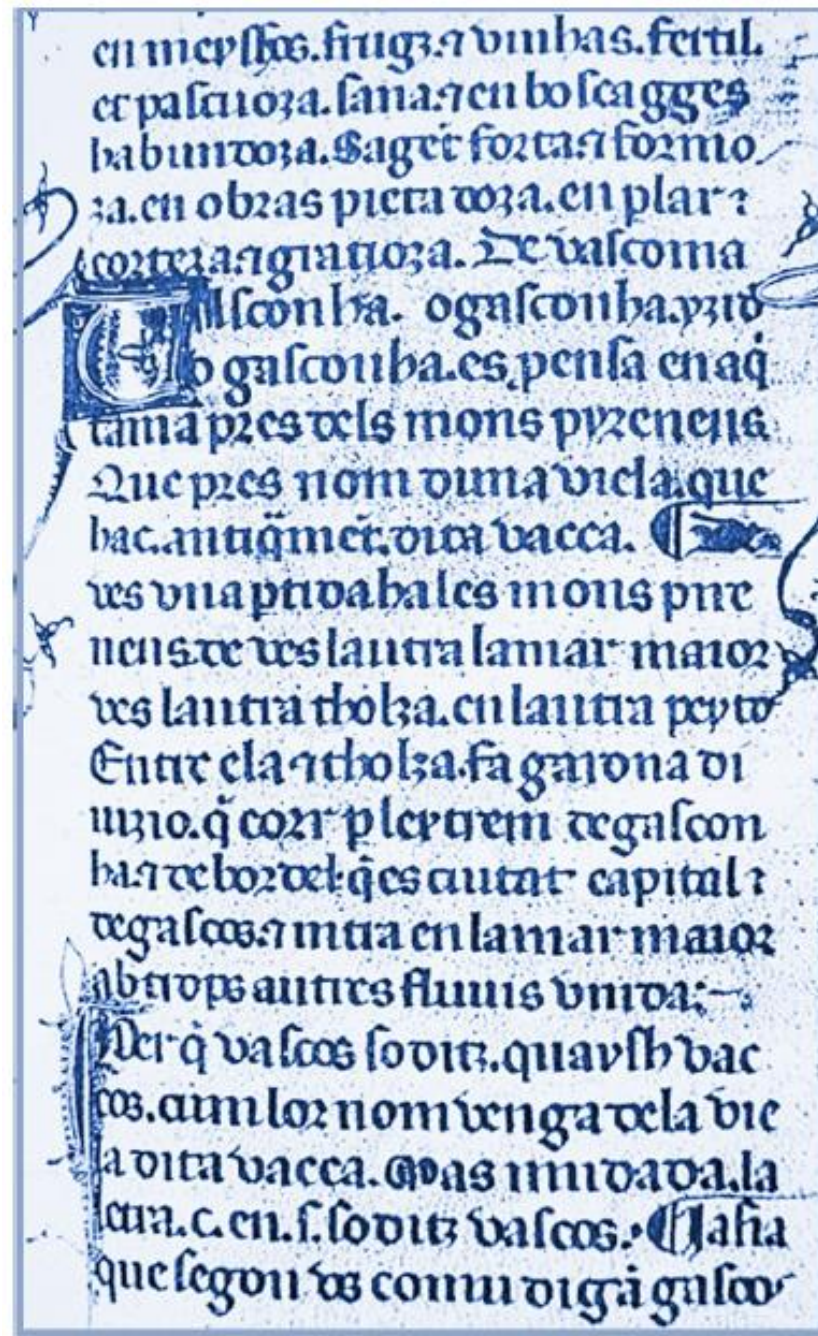 en meyshos. frugz. ⁊ vinhas. fertil.
et pascuoza. sana. ⁊ en boscagges
habundoza. Sa get forta. ⁊ formo
za. en obras pietadoza. en plar ⁊
corteza. ⁊ gratioza. De vasconia
Vasconha. o gasconha. yzid
o gasconha. es pensa en aq̇
tania pres dels mons pyreneus.
Que pres nom duna viela. que
hac. antiq̄met. dita vacca.
ves vna ptida ha les mons pire
neus. de ves lautra la mar maior
ves lautra tholza. en lautra peyto
Entre ela ⁊ tholza. fa garona di
uizio. q̇ corr p leytrem de gascon
ha. ⁊ de bordel. q̇ es ciutat capital ⁊
de gascos. ⁊ intra en la mar maior
ab trops autres fluuis vnida:
Per q̇ vascos so ditz. quaysh vac
cos. cum lor nom venga de la vie
la dita vacca. Mas mudada. la
letra. c. en. s. so ditz vascos.
que segon vs comu diga gasco